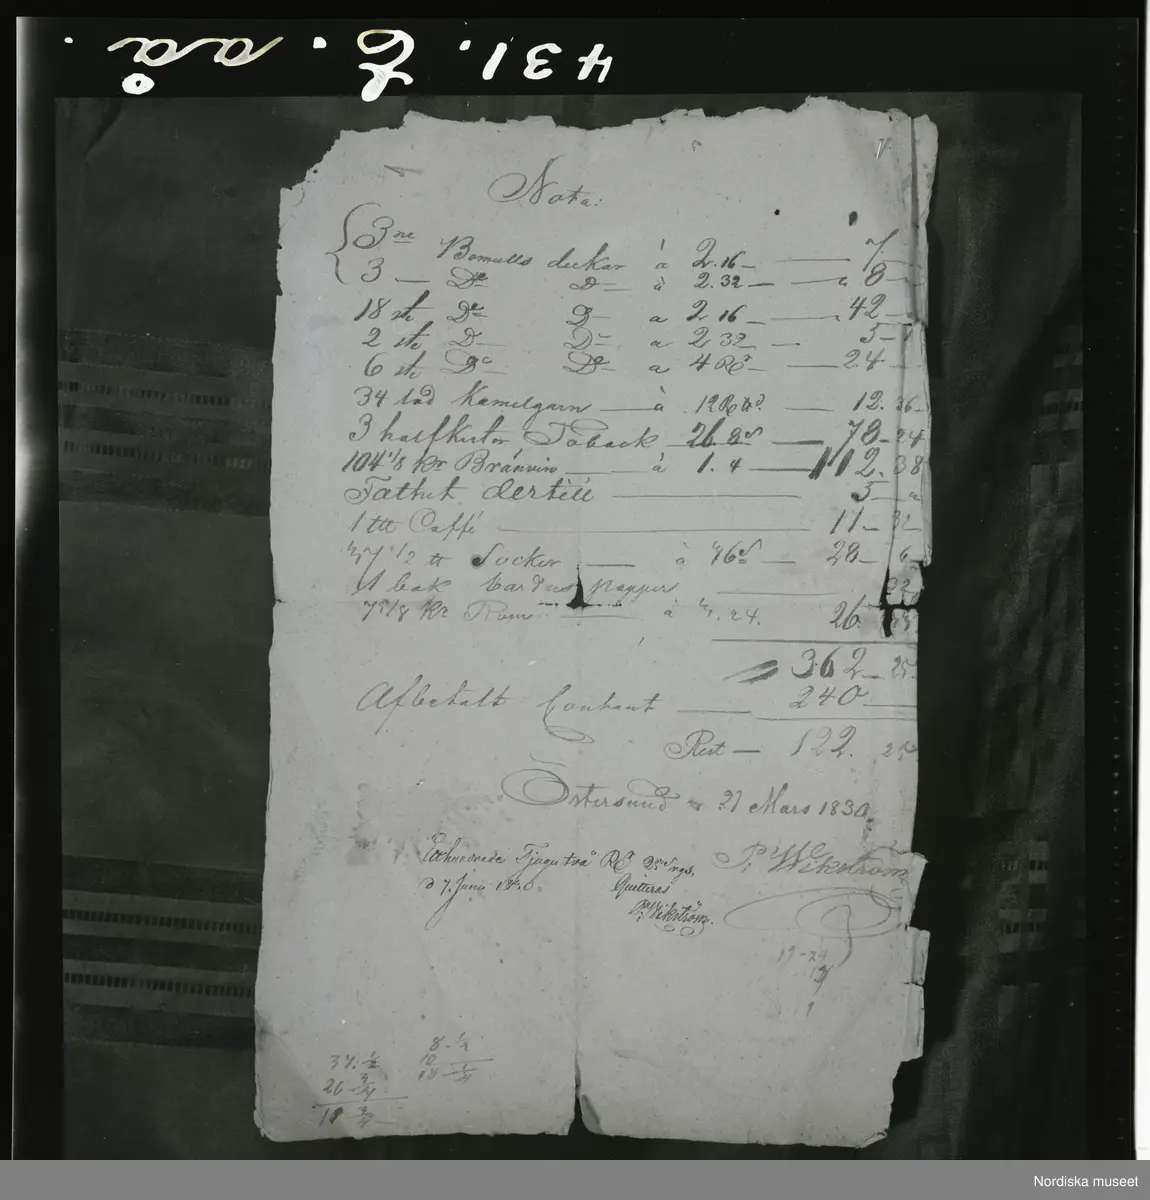 431. E. aå.
Nota:
3ne Bomulls duckar à 2.16 — 7
3 — Do Do à 2.32 — " 8 —
18 st Do Do a 2 16 — 42 —
2 st Do Do a 2 32 — 5 —
6 st Do Do a 4 Rd — 24 —
34 lod Kamelgarn — à 12 — 12. 36
3 halfkistor Toback 26 8s — 78 - 24
104 1/8 Kr Bränvin — à 1.4 — 112. 38
Fathut dertill — 5 — "
1 ttt Caffé — 11 — 32
1/2 tt Socker — à 46s — 28 — 6
1 bok papper — 32
7 1/8 Kr Rom — à 24. 26.
362 — 25
Afbetalt Conhant — 240
Rest — 122. 25
Östersund 21 Mars 1830
P. Wikström
Etthundrade Tjugutvå Rd 25 s rgs.
d 7. Juni 1830. Quitteras
P. Wikström.
19 - 24
37. 1/2
26 3/4
11 3/4
8 - 1/2
10
18
Nordiska museet